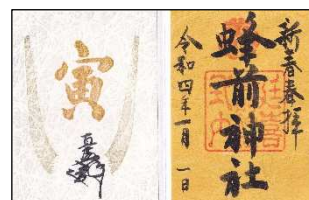 新春奉拝
蜂前神社
令和四年一月一日
寅